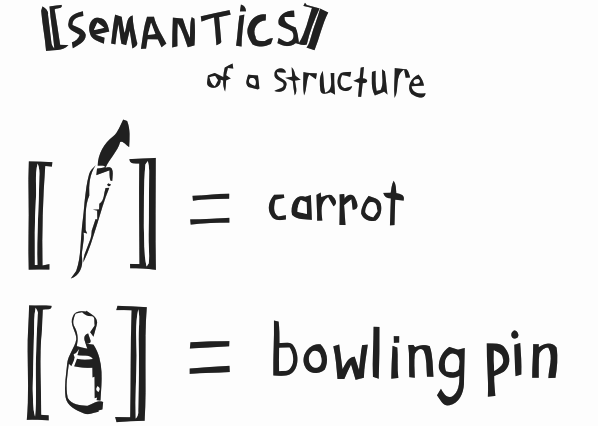 ⟦SEMANTICS⟧
of a structure
⟦ ⟧ = carrot
⟦ ⟧ = bowling pin